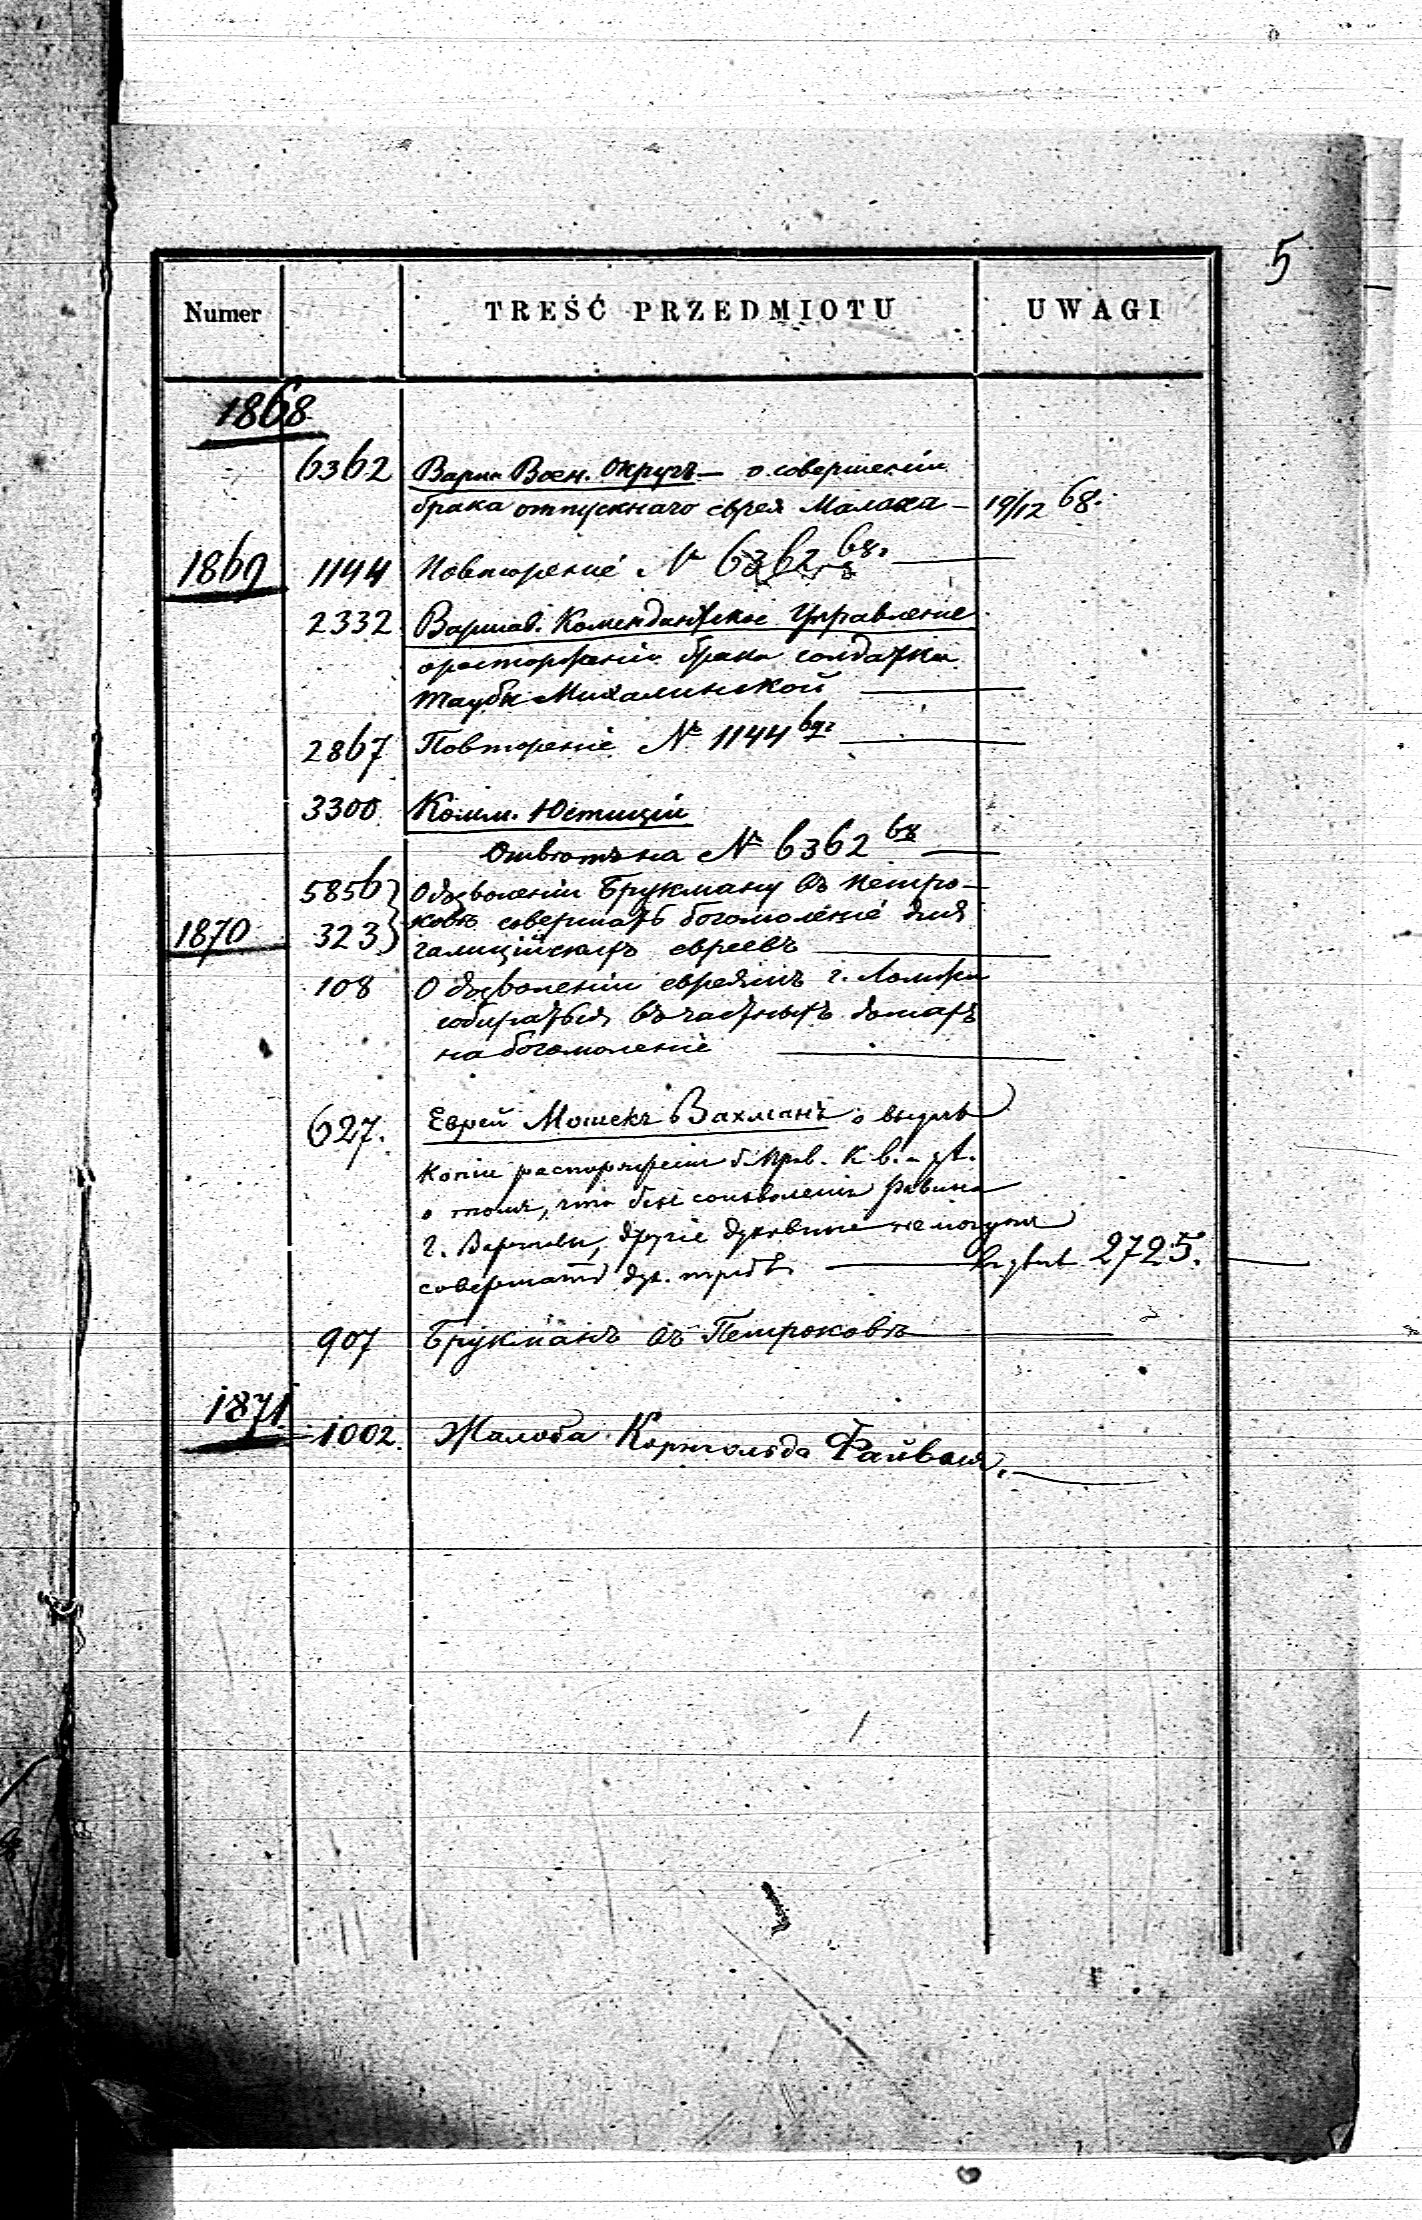 5
Numer TREŚĆ PRZEDMIOTU UWAGI
1868
6362 Варш. Воен. Округъ — о совершеніи
брака отпускнаго еврея Малаха — 19/12 68.
1869 1144 Повтореніе № 6362 68.
2332 Варшав. Комендантское Управленіе
о расторженіи брака солдатки
Таубы Михалинской
2867 Повтореніе № 1144 69г
3300 Комм. Юстиціи
Отвѣтъ на № 6362 68
5856 О дозволеніи Брукману въ Петро-
1870 323 ковѣ совершать богомоленіе для
галиційскихъ евреевъ
108 О дозволеніи евреямъ г. Ломжи
собираться въ частныхъ домахъ
на богомоленіе
627. Еврей Мошекъ Вахманъ о выдачѣ
копіи распоряженія б. Прав. К. в. и д.
о томъ, что безъ соизволенія Равина
г. Варшавы, другіе духовные не могутъ
совершать дух. требъ 2725.
907 Брукманъ въ Петроковѣ
1871 1002. Жалоба Корнгольда Файвеля.